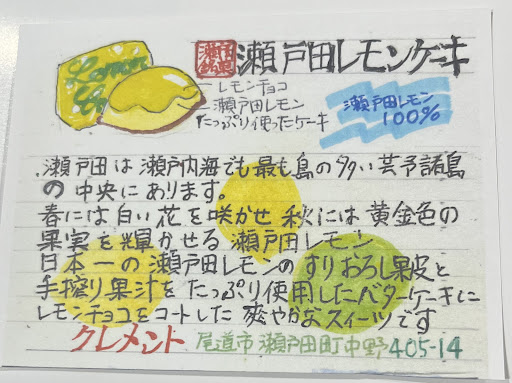 瀬戸田レモンケーキ
レモンチョコ
瀬戸田レモン
たっぷり使ったケーキ
瀬戸田レモン
100%
瀬戸田は瀬戸内海でも最も島の多い芸予諸島
の中央にあります。
春には白い花を咲かせ 秋には黄金色の
果実を輝かせる瀬戸田レモン
日本一の瀬戸田レモンのすりおろし果皮と
手搾り果汁をたっぷり使用したバターケーキに
レモンチョコをコートした爽やかなスイーツです
クレメント 尾道市瀬戸田町中野405-14